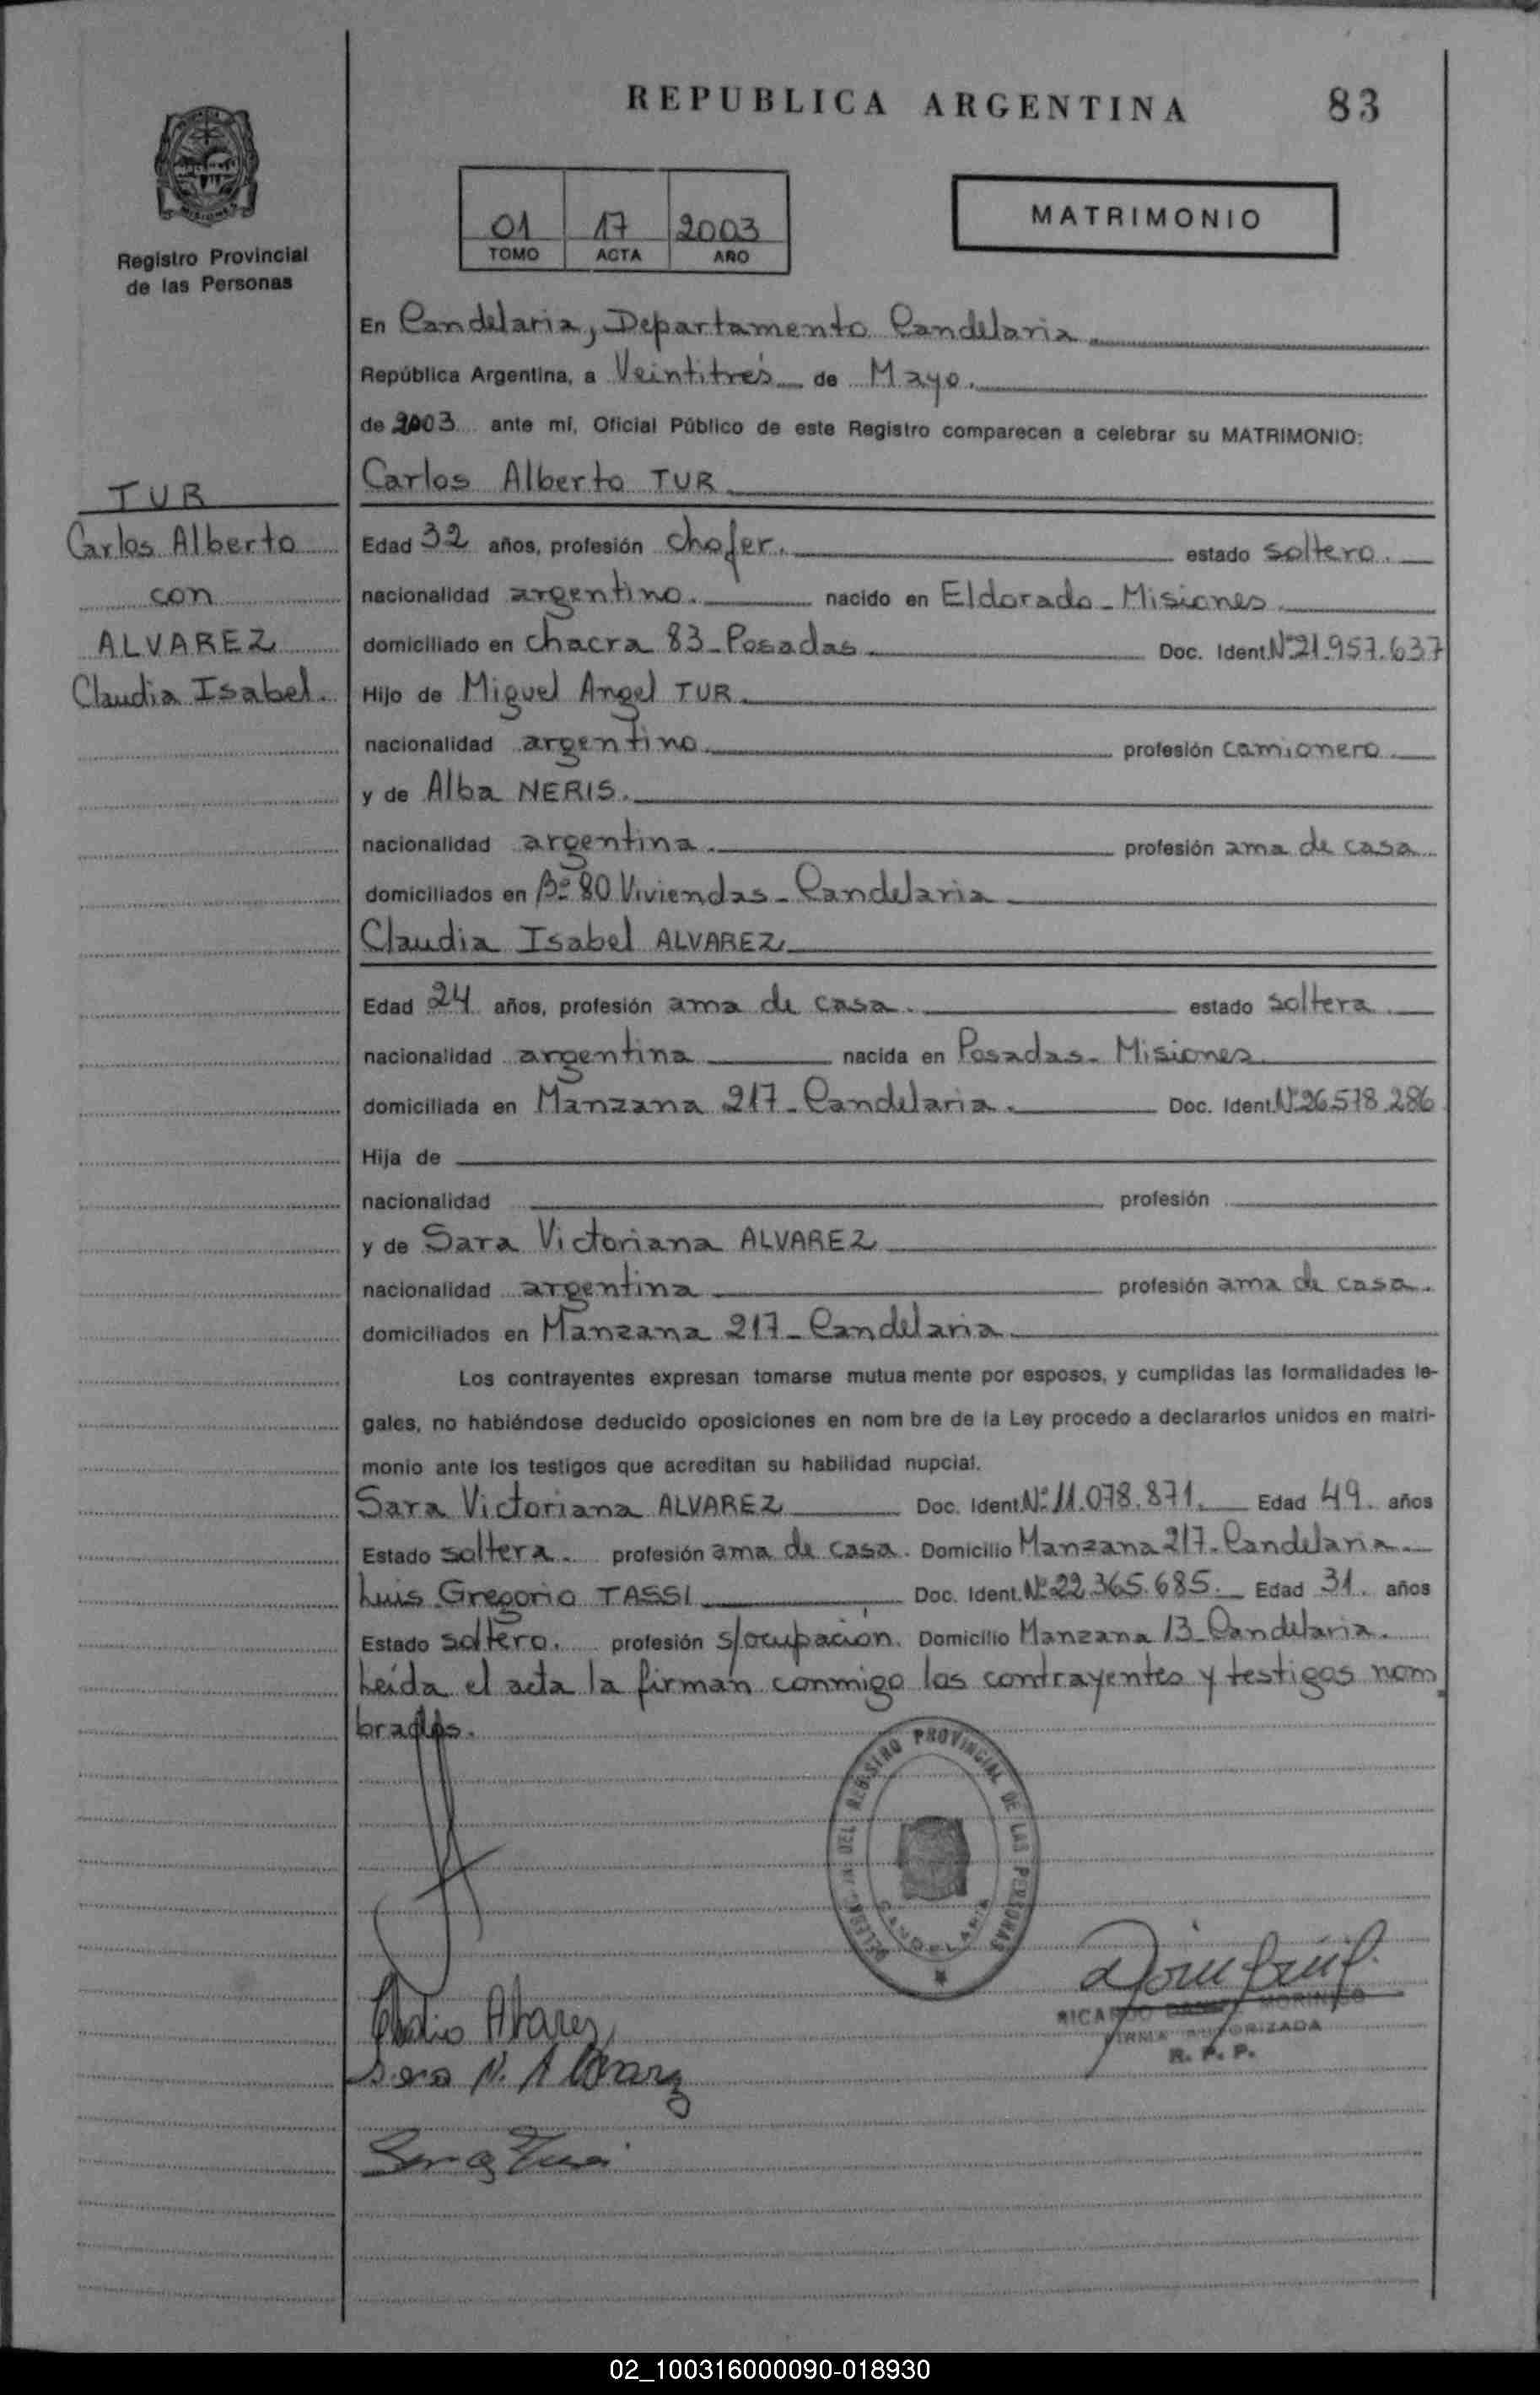 REPUBLICA ARGENTINA 83
01 17 2003
TOMO ACTA AÑO
MATRIMONIO
MISIONES
Registro Provincial
de las Personas
TUR
Carlos Alberto
con
ALVAREZ
Claudia Isabel.
En Candelaria, Departamento Candelaria
República Argentina, a Veintitrés de Mayo.
de 2003 ante mí, Oficial Público de este Registro comparecen a celebrar su MATRIMONIO:
Carlos Alberto TUR
Edad 32 años, profesión chofer. estado soltero.
nacionalidad argentino. nacido en Eldorado - Misiones
domiciliado en chacra 83 - Posadas Doc. Ident. Nº 21.957.637
Hijo de Miguel Angel TUR
nacionalidad argentino profesión camionero
y de Alba NERIS.
nacionalidad argentina. profesión ama de casa
domiciliados en Bº 80 Viviendas - Candelaria
Claudia Isabel ALVAREZ
Edad 24 años, profesión ama de casa. estado soltera.
nacionalidad argentina nacida en Posadas - Misiones
domiciliada en Manzana 217 - Candelaria. Doc. Ident. Nº 26.578.286
Hija de
nacionalidad profesión
y de Sara Victoriana ALVAREZ
nacionalidad argentina profesión ama de casa.
domiciliados en Manzana 217 - Candelaria
Los contrayentes expresan tomarse mutua mente por esposos, y cumplidas las formalidades le-
gales, no habiéndose deducido oposiciones en nom bre de la Ley procedo a declararlos unidos en matri-
monio ante los testigos que acreditan su habilidad nupcial.
Sara Victoriana ALVAREZ Doc. Ident. Nº 11.078.871. Edad 49. años
Estado soltera. profesión ama de casa. Domicilio Manzana 217 - Candelaria.
Luis Gregorio TASSI Doc. Ident. Nº 22.365.685. Edad 31. años
Estado soltero. profesión s/ocupación. Domicilio Manzana 13 - Candelaria.
Leída el acta la firman conmigo los contrayentes y testigos nom
brados.
DELEGACION DEL REGISTRO PROVINCIAL DE LAS PERSONAS
CANDELARIA
Alvarez
Sara V. Alvarez
RICARDO MORINIGO
FIRMA AUTORIZADA
R. P. P.
02_100316000090-018930